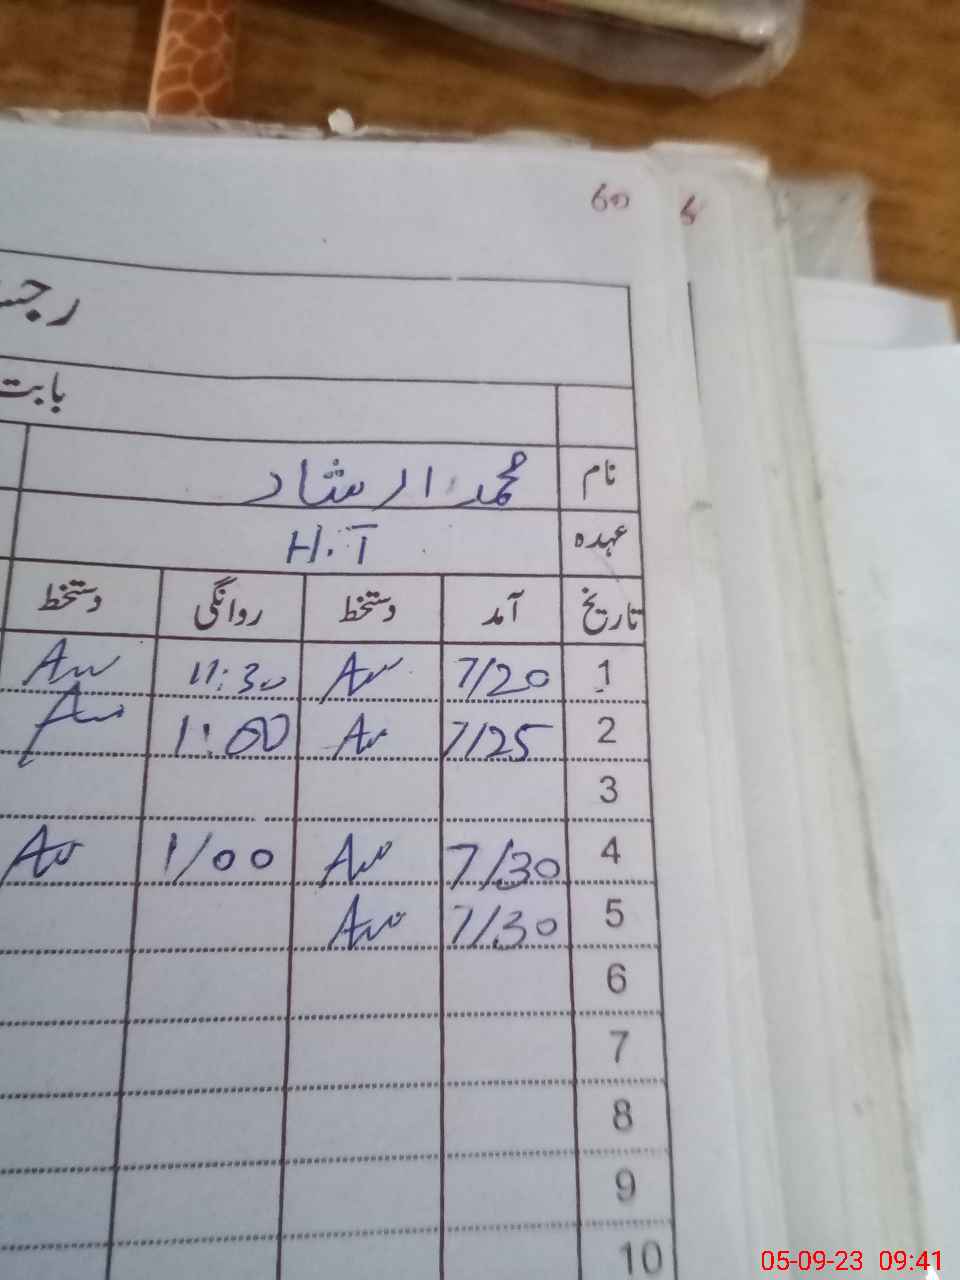 60
رجسـ
بابت
نام محمد ارشاد
عہدہ H.T
تاریخ آمد دستخط روانگی دستخط
1 7/20 11:30
2 7/25 1:00
3
4 7/30 1/00
5 7/30
6
7
8
9
10
05-09-23 09:41